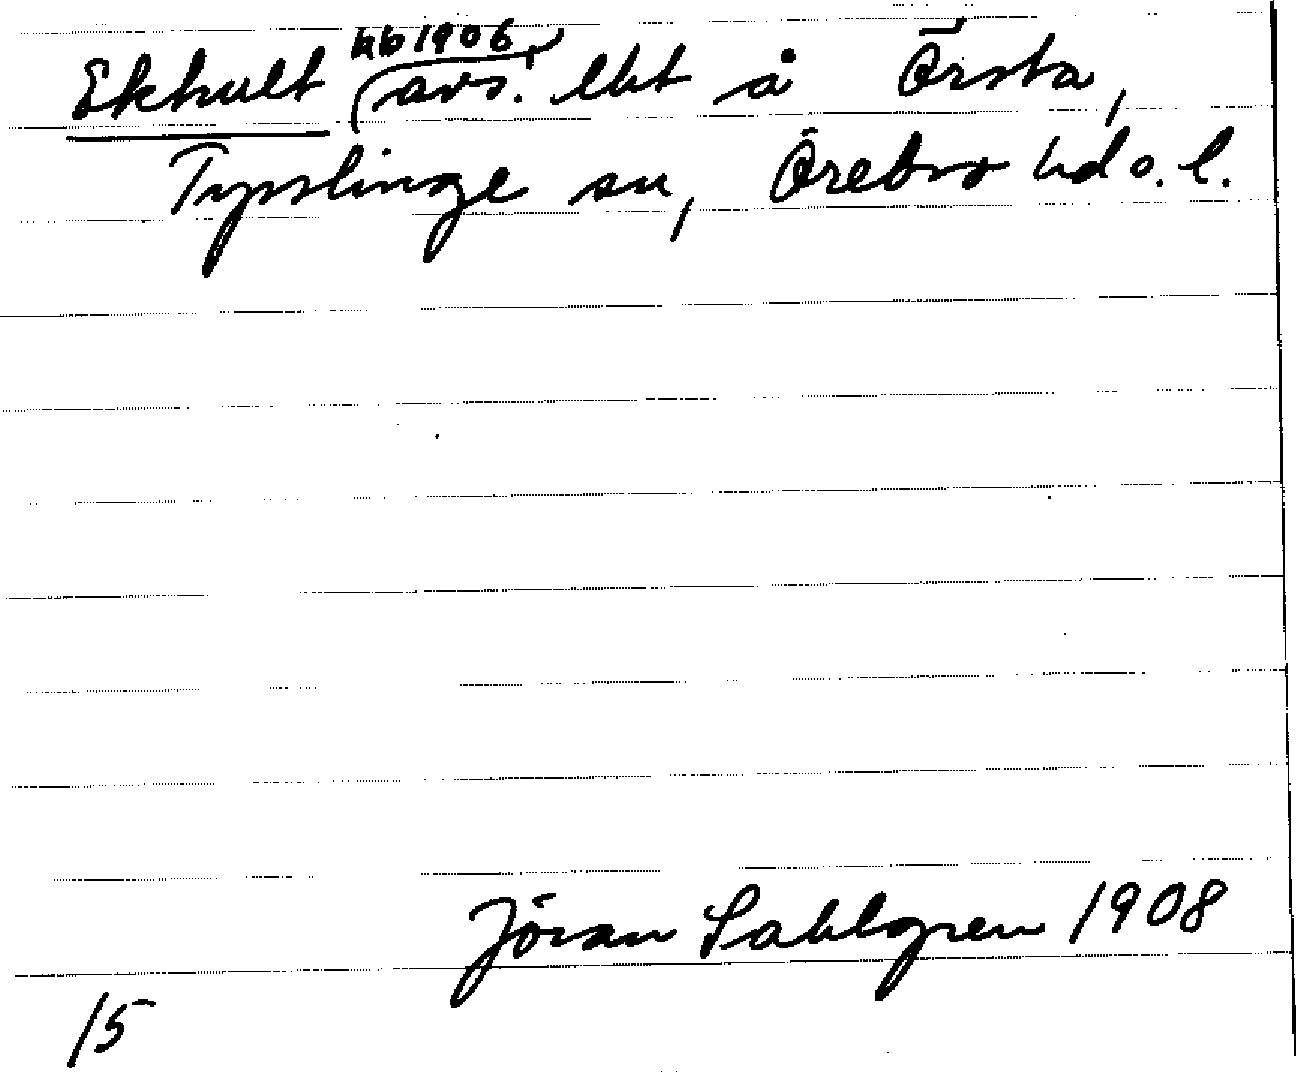 hb 1906
Ekhult avs. lht å Örsta,
Tysslinge sn, Örebro hd o. l.
Jöran Sahlgren 1908
15